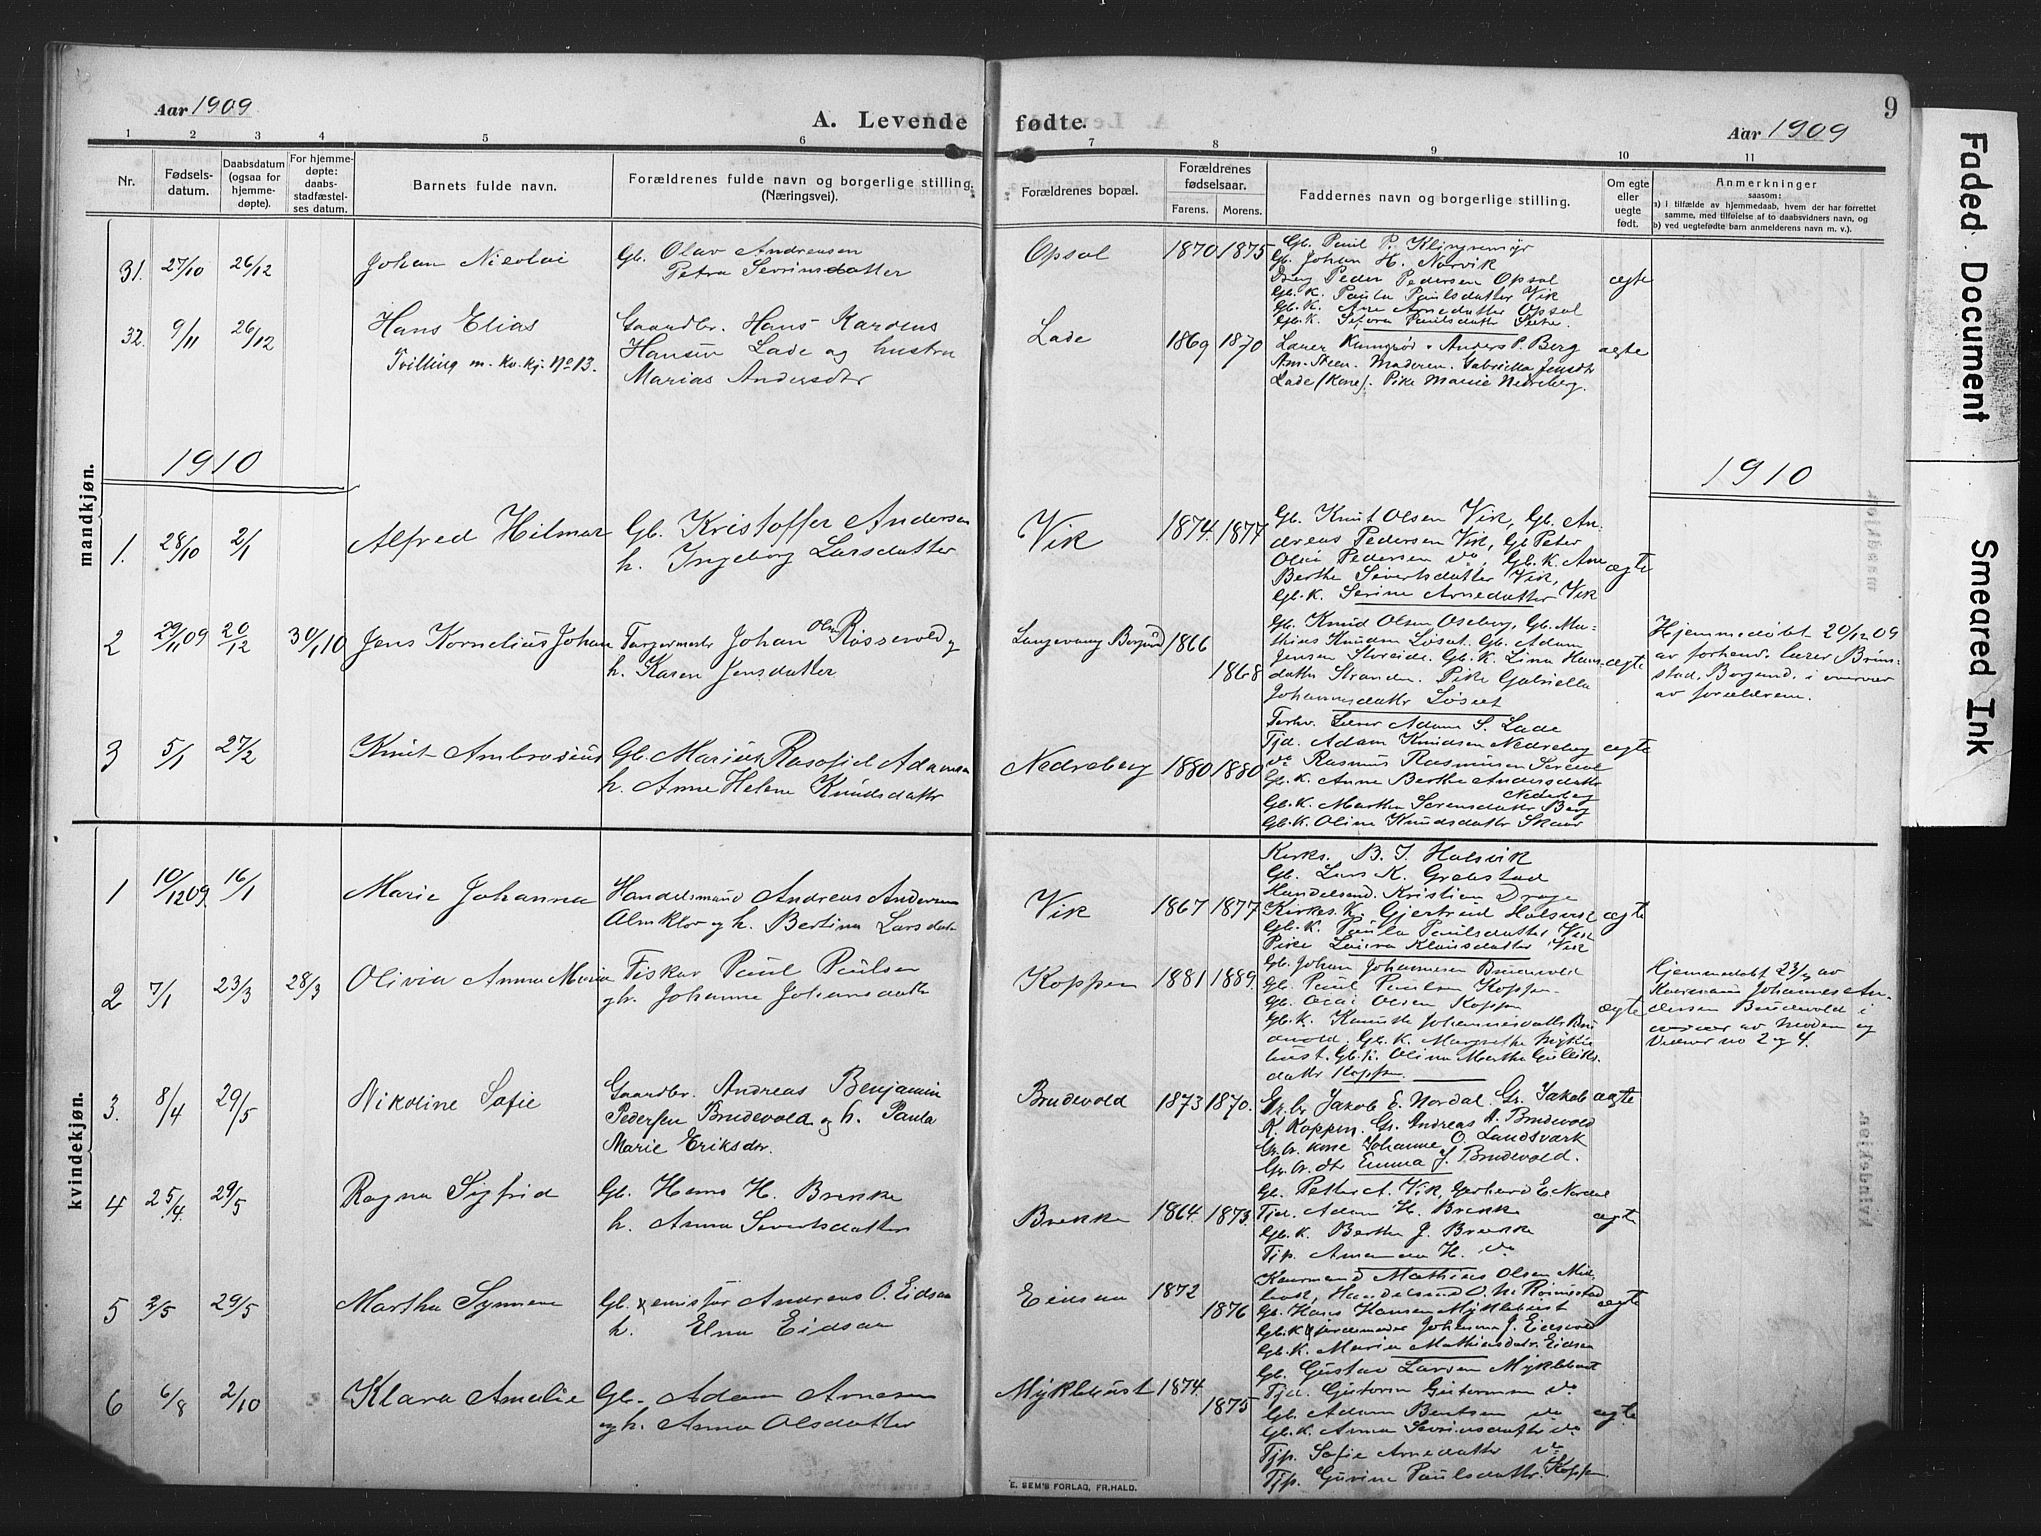 Aar 1909
A. Levende fødte.
Aar 1909
9
1 2 3 4 5 6 7 8 9 10 11
Nr.
Fødsels-
datum.
Daabsdatum
(ogsaa for
hjemme-
døpte).
For hjemme-
døpte:
daabs-
stadfæstel-
ses datum.
Barnets fulde navn.
Forældrenes fulde navn og borgerlige stilling.
(Næringsvei).
Forældrenes bopæl.
Forældrenes
fødselsaar.
Farens. Morens.
Faddernes navn og borgerlige stilling.
Om egte
eller
uegte
født.
Anmerkninger
saasom:
a) i tilfælde av hjemmedaab, hvem der har forrettet
samme, med tilføielse af to daabsvidners navn, og
b) ved uegtefødte barn anmelderens navn m. v.).
mandkjøn.
31. 27/10 26/12 Johan Nicolai
Gb. Olav Andreasen
Petra Sevrinsdatter
Opsal 1870 1875
Gb. Paul P. Klingremyr
Gb. Johan H. Norvik
Peder Pedersen Opsal
Gb. K. Paula Paulsdatter Vik
Gb. K. Ane Arnedatter Opsal
Gb. K. Paulsdatter
ægte
32. 9/11 26/12 Hans Elias
Tvilling m. kv. kj. No 13.
Gaardbr. Hans Karolus
Hansen Lade og hustru
Marias Andersdtr
Lade 1869 1870
Lærer Anders P. Berg
Maderen. Gabriella Jensdtr
Lade (Kone). Pike Marie Nedreberg.
ægte
1910
1910
1. 28/10 2/1 Alfred Hilmar
Gb. Kristoffer Andersen
h. Ingeborg Larsdatter
Vik 1874. 1877
Gb. Knut Olsen Vik, Gb. An-
dreas Pedersen Vik, Gb Peter
Pedersen do, Gb. K. Ane
Berthe Sivertsdatter Vik,
Gb. K. Serine Arnedatter Vik
ægte
2 29/11 09 20/12 30/1 10 Jens Kornelius Johan
Johan Olsen Røssevold og
h. Karen Jensdatter
Langevaag Borgund 1866
1868
Gb. Knud Olsen Oseberg, Gb. Ma-
thias Knudsen Løset. Gb. Adam
Jensen Streide. Gb. K. Lina Hans-
datter Stranden. Pike Gabriella
Johannesdatter Løset
ægte
Hjemmedøbt 20/12 09
av forhenv. lærer Brun-
stad, Borgund, i overvær
av forældrene.
3 5/1 27/2 Knut Ambrosius
Gb. Marius Adamsen
h. Anne Helene Knudsdattr
Nedreberg 1880 1880
Forhv. Lærer Adam S. Lade
Tjd. Adam Knudsen Nedreberg
do Rasmus Rasmussen
Gb. K. Anne Berthe Andersdatter
Nedreberg
Gb. K. Marthe Sorensdattr Berg
Gb. K. Oline Knudsdattr Skaar
ægte
kvindekjøn.
1 10/12 09. 16/1 Marie Johanna
Handelsmand Andreas Andersen
Almklov og h. Bertine Larsdatr
Vik 1867 1877
Kirks. B. J. Halsvik
Gb. Lars K. Grebstad
Handelsmd. Kristian Drage
Kirkes. K. Gjertrud Halsvik
Gb. K. Paula Paulsdatter Vik
Pike Laura Klausdatter Vik
ægte
2 7/1 23/3 28/3 Olivia Anna Maria
Fisker Paul Paulsen
gh. Johanne Johansdatr
Koppen 1881 1889.
Gb. Johan Johannesen Brudevold
Gb. Paul Paulsen Koppen
Gb. Olai Olsen Koppen
Gb. K. Johannesdattr Bru-
devold. Gb. K. Margrethe Mykle-
bust. Gb. K. Olina Marthe Gulliks-
dattr Koppen.
ægte
Hjemmedøbt 23/3 av
Johannes An-
dersen Brudevold i
overvær av moderen og
Vidner no 2 og 4.
3. 8/4 29/5 Nikoline Sofie
Gaardbr. Andreas Benjamin
Pedersen Brudevold og h. Paula
Marie Eriksdtr.
Brudevold 1873 1870.
Gr. br Jakob E. Nordal. Gr. Jakob
K. Koppen. Gr. Andreas A. Brudevold
Gr. br. kone Johanne O. Landsværk
Gr. br. dtr Emma J. Brudevold.
ægte
4 25/4 29/5 Ragna Sigfrid
Gb. Hans H. Brekke
h. Anna Sivertsdatter
Brekke 1864. 1873.
Gb. Petter A. Vik, Gerhard E. Nordal
Tjd. Adam H. Brekke
Gb. K. Berthe J. Brekke
Tjp. H. do
ægte
5 2/5 29/5 Martha Synnøve
Gb. Andreas O. Eidsaa
h. Elna Eidsaa
Eidsaa 1872
1876
Kaarmand Mathias Olsen Mik-
lebost, Handelsmd O. M. Ro
Gb. Hans Hansen Myklebust
Gb. K. jordemoder Johanna J. Eidsvold
Gb. K. Maria Mathiasdatr. Eidsaa
ægte
6 6/8 2/10 Klara Amalie
Gb. Adam Arnesen
og h. Anna Olsdatter
Myklebust 1874.
1875
Gb. Gustav Larsen Myklebust
Tjd. Guttorm Guttormsen do
Gb. Adam Bentsen do
Gb. K. Anna Sevrinsdatter do
Tjp. Sofie Arnedatter do
Tjp. Gurine Paulsdattr. Koppen
ægte
E. SEM'S FORLAG, FR.HALD.
Faded Document
Smeared Ink